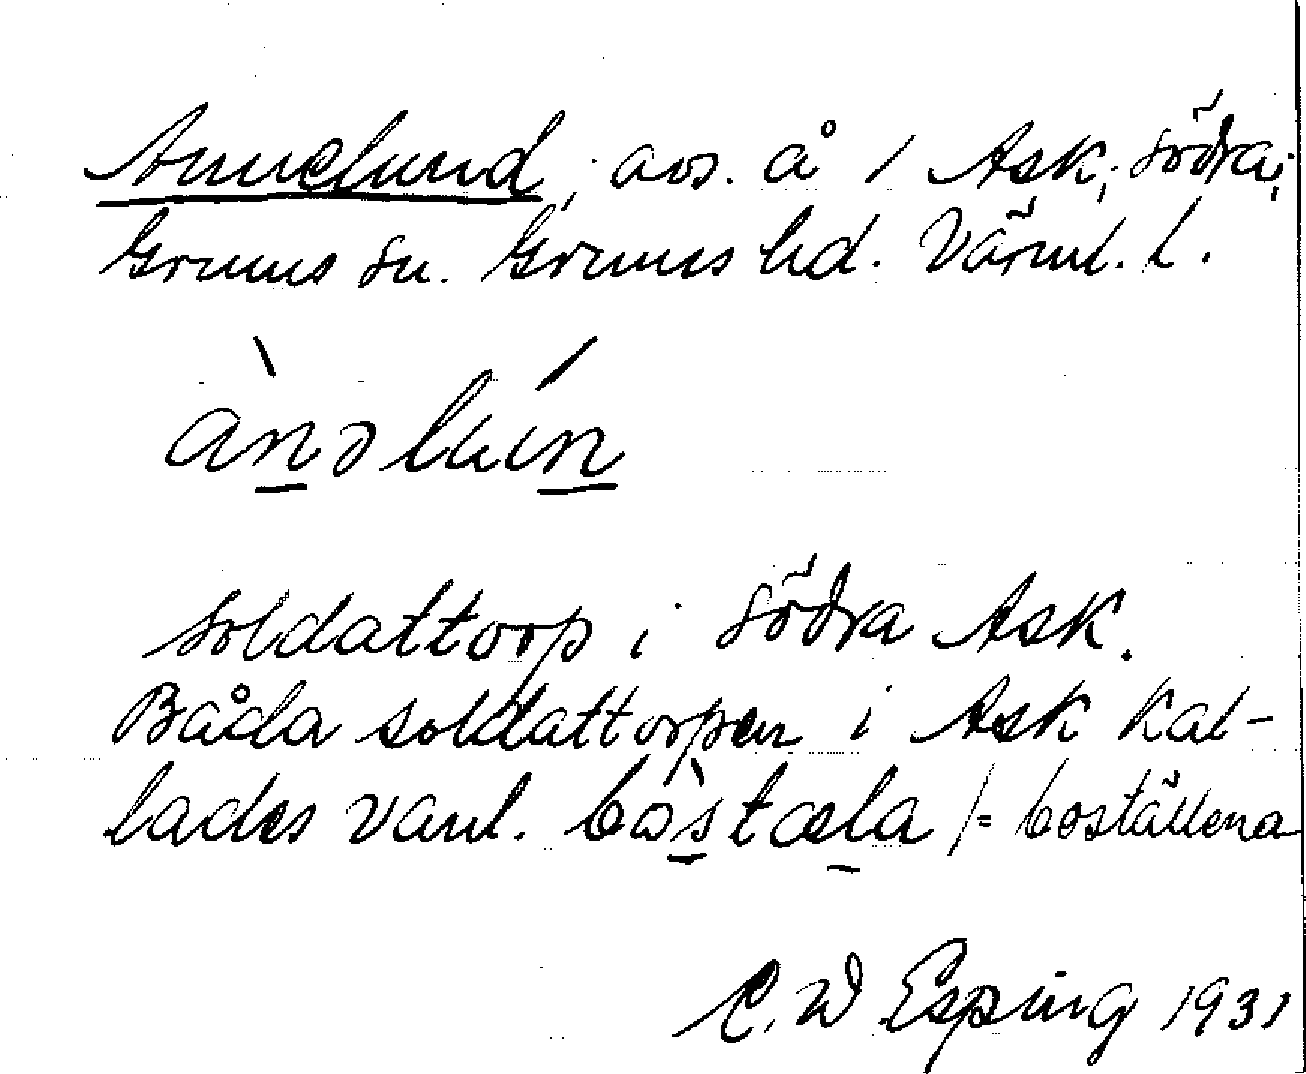 Annelund, avs. å 1 Ask, södra,
Grums sn. Grums hd. Värml. l.
ànəlún
soldattorp i södra Ask.
Båda soldattorpen i Ask kal-
lades vanl. bòstæla /= boställena
C. W Esping 1931